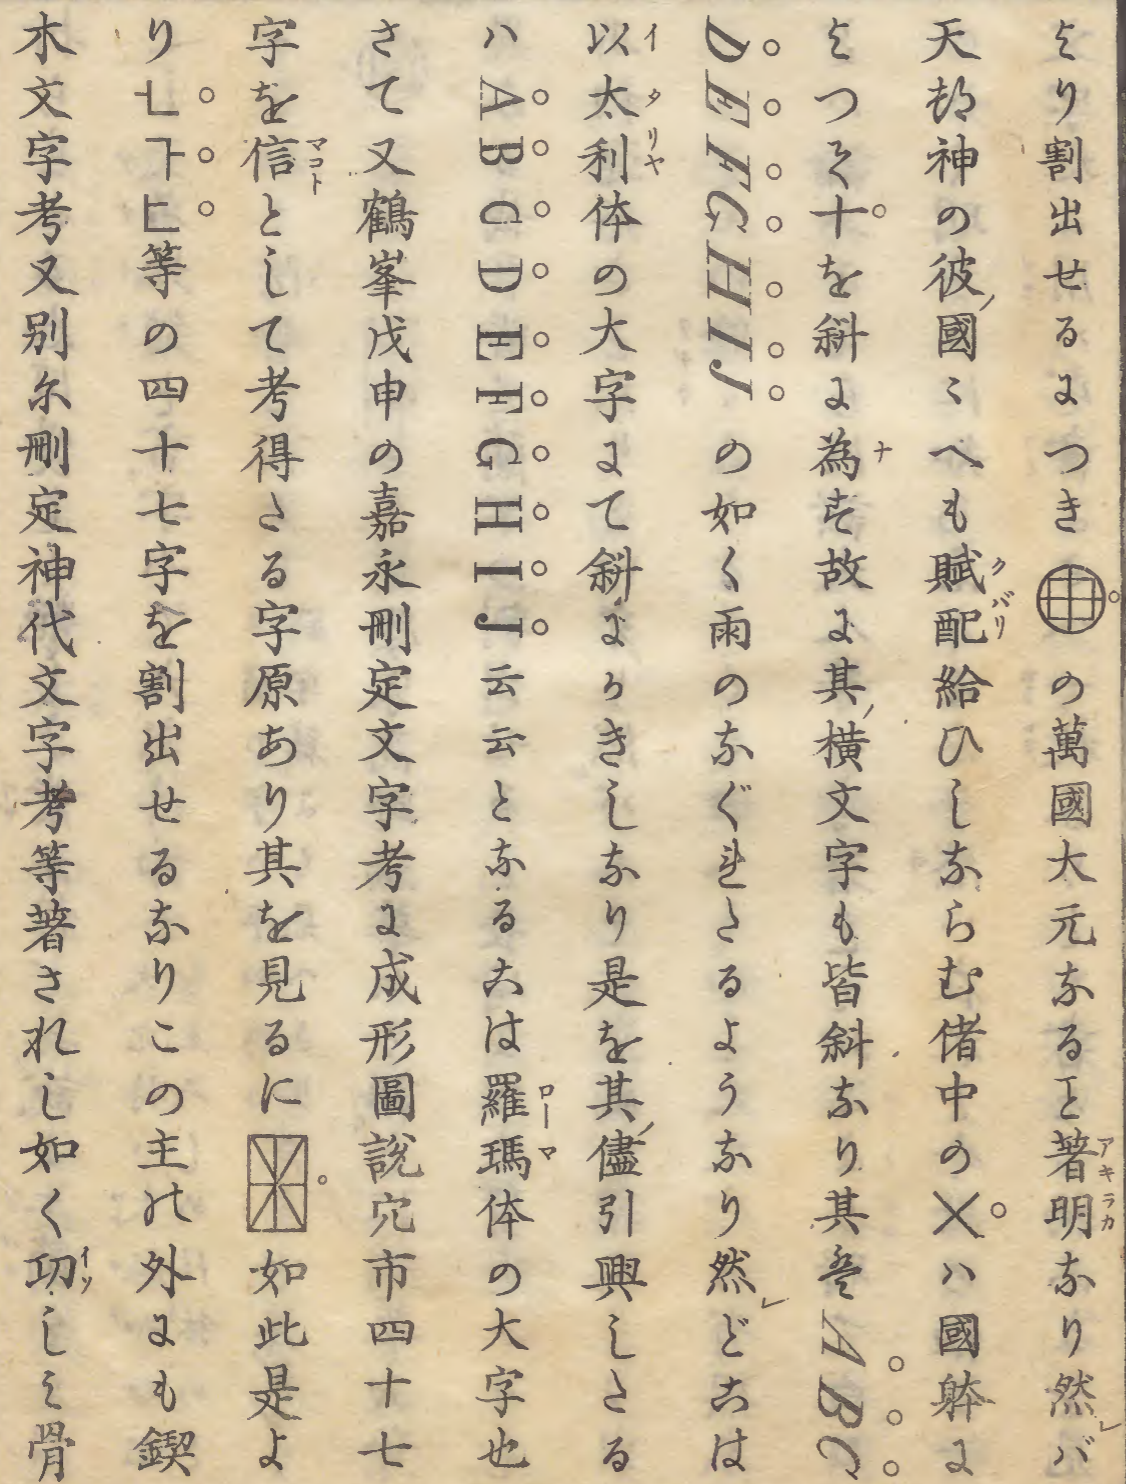 より割出せるよつき の萬國大元なるヿ著明なり然バ
天都神の彼國〻へも賦配給ひしならむ偖中の╳ハ國躰に
よつて十を斜に為す故に其横文字も皆斜なり其は A B C
D E F G H I J の如く雨のなぐれたるようなり然どこは
以太利体の大字にて斜にかきしなり是を其儘引興したる
ハ A B C D E F G H I J 云云となるこは羅瑪体の大字也
さて又鶴峯戊申の嘉永刪定文字考に成形圖説穴市四十七
字を信として考得たる字原あり其を見るに 如此是よ
り 等の四十七字を割出せるなりこの主の外にも鍥
木文字考又別尓刪定神代文字考等著されし如く功しみ骨